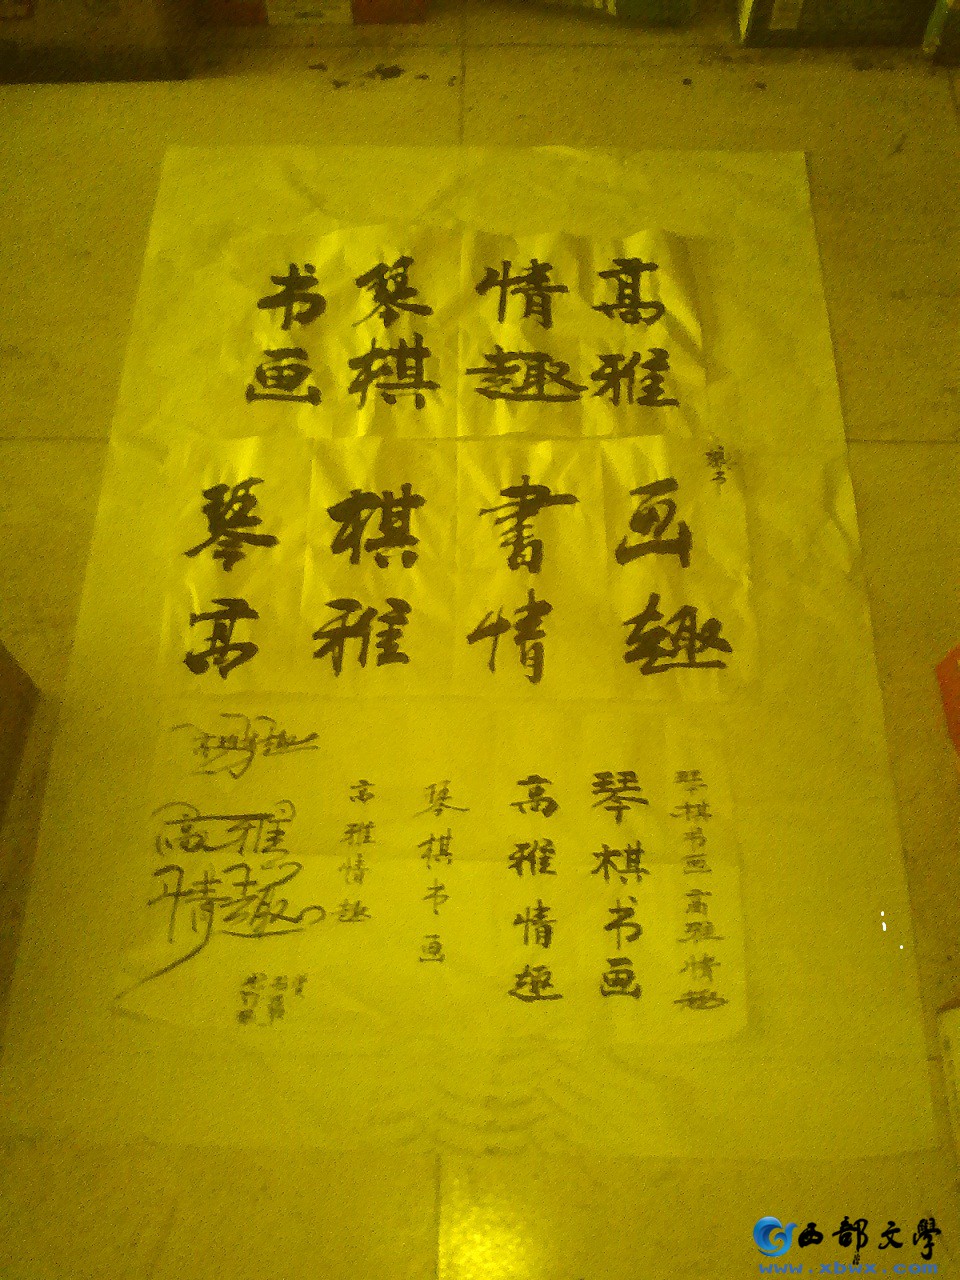 高雅
情趣
琴棋
书画
琴棋書画
高雅情趣
琴棋书画高雅情趣
琴棋书画
高雅情趣
琴棋书画
高雅情趣
高雅
情趣
西部文學
www.xbwx.com